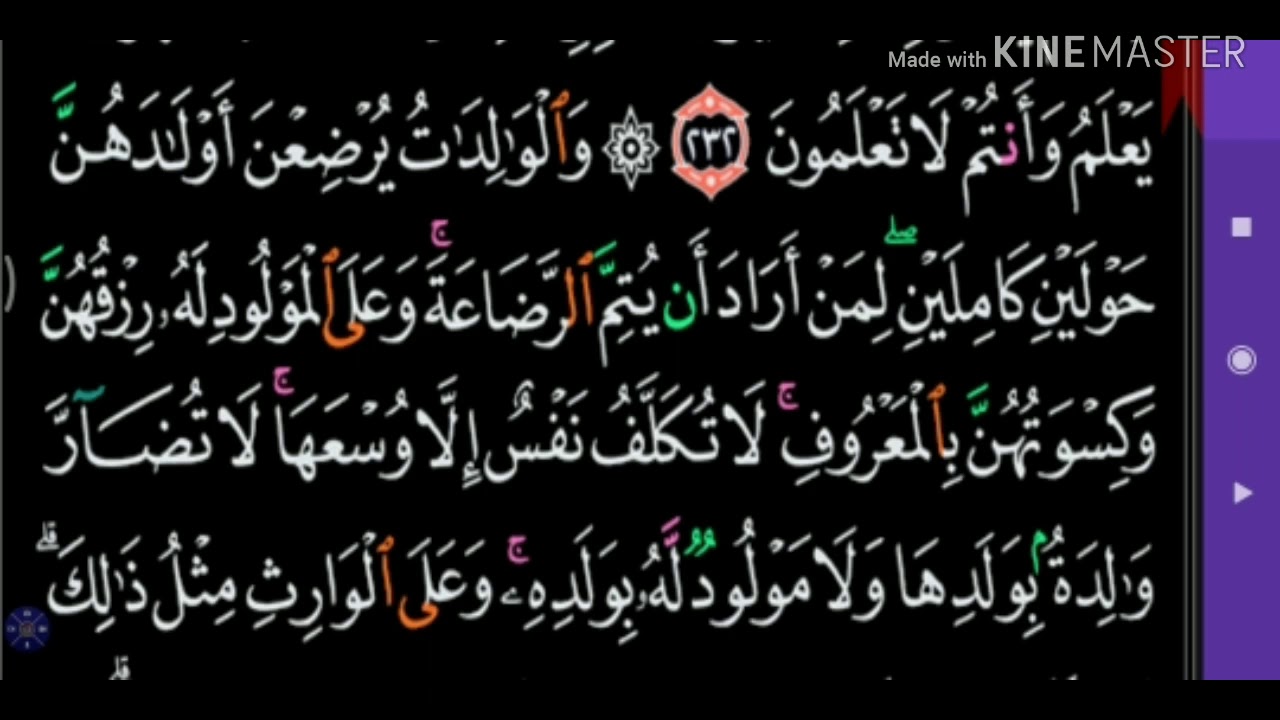 Made with KINEMASTER
يَعْلَمُ وَأَنتُمْ لَا تَعْلَمُونَ ٢٣٢ ۞ وَٱلْوَٰلِدَٰتُ يُرْضِعْنَ أَوْلَٰدَهُنَّ
حَوْلَيْنِ كَامِلَيْنِ ۖ لِمَنْ أَرَادَ أَن يُتِمَّ ٱلرَّضَاعَةَ ۚ وَعَلَى ٱلْمَوْلُودِ لَهُۥ رِزْقُهُنَّ
وَكِسْوَتُهُنَّ بِٱلْمَعْرُوفِ ۚ لَا تُكَلَّفُ نَفْسٌ إِلَّا وُسْعَهَا ۚ لَا تُضَآرَّ
وَٰلِدَةُۢ بِوَلَدِهَا وَلَا مَوْلُودٌ لَّهُۥ بِوَلَدِهِۦ ۚ وَعَلَى ٱلْوَارِثِ مِثْلُ ذَٰلِكَ ۗ